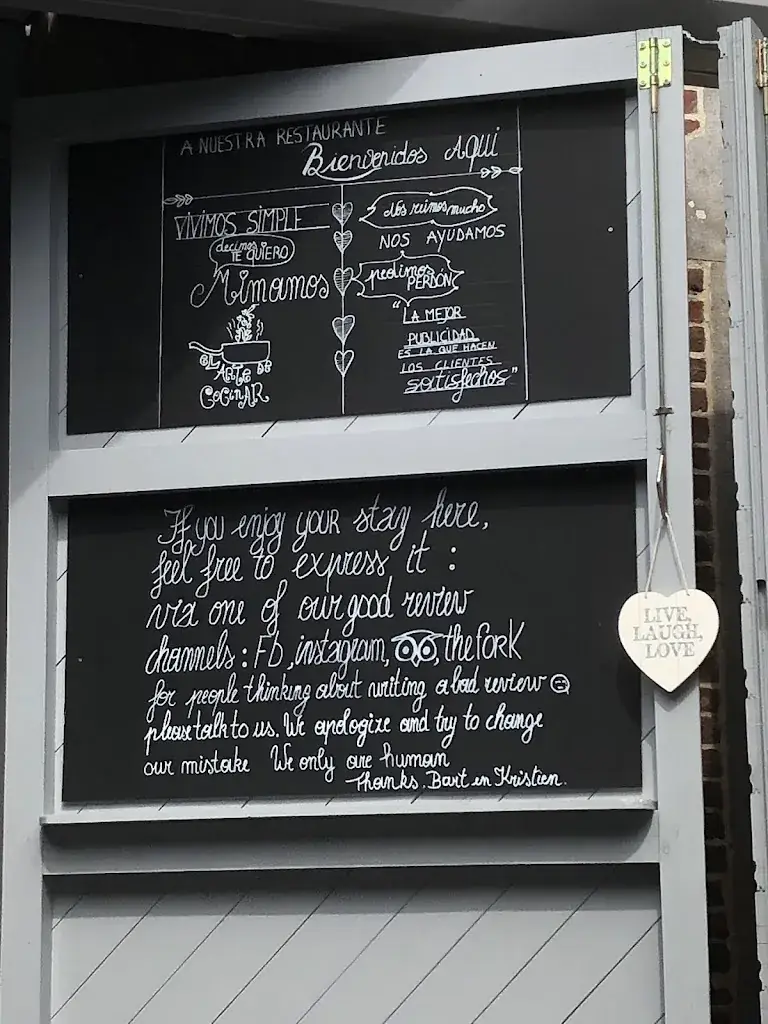 A NUESTRA RESTAURANTE
Bienvenidos AQUI
VIVIMOS SIMPLE
decimos
TE QUIERO
Mimamos
EL
ARTE DE
COCINAR
NOS reimos mucho
NOS AYUDAMOS
pedimos
PERDÓN
"LA MEJOR
PUBLICIDAD
ES LA QUE HACEN
LOS CLIENTES
satisfechos"
If you enjoy your stay here,
feel free to express it :
via one of our good review
channels : Fb, instagram, , the fork
for people thinking about writing a bad review
please talk to us. We apologize and try to change
our mistake We only are human
Thanks, Bart en Kristien.
LIVE,
LAUGH,
LOVE